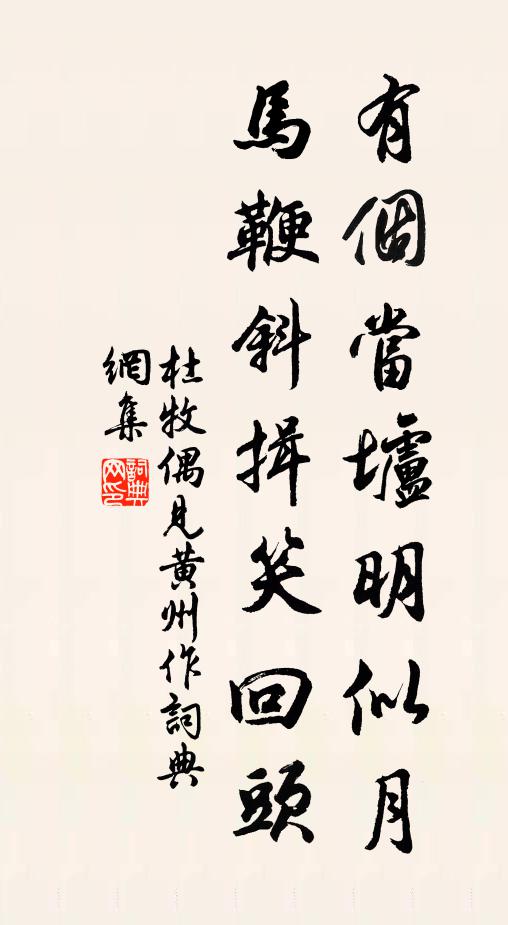 有個當壚明似月
馬鞭斜揖笑回頭
杜牧偶見黃州作詞典
網集
詞典網印